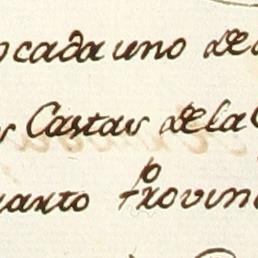 cada uno de
Castas de la
uarto Provin